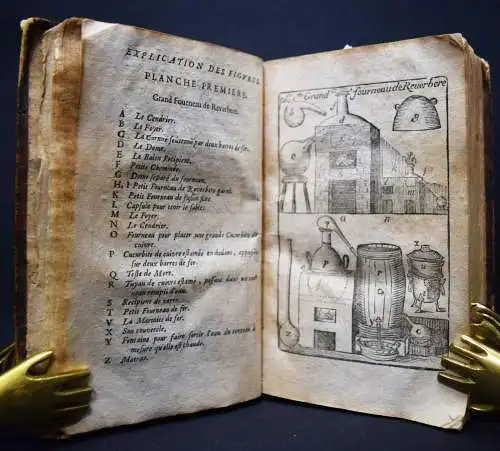 EXPLICATION DES FIGURES.
PLANCHE PREMIERE.
Grand Fourneau de Reverbere.
A Le Cendrier.
B Le Foyer.
C La Cornuë soutenuë par deux barres de fer.
D Le Dome.
E Le Balon Recipient.
F Petite Cheminée.
G Dome separé du fourneau.
H Petit Fourneau de Reverbere garni.
K Petit Fourneau de fusion fixe.
L Capsule pour tenir le sable.
M Le Foyer.
N Le Cendrier.
O Fourneau pour placer une grande Cucurbite de
cuivre.
P Cucurbite de cuivre estamée en dedans, appuyée
sur deux barres de fer.
Q Teste de More.
R Tuyau de cuivre estamé, passant dans un ton-
neau rempli d'eau.
S Recipient de verre.
T Petit Fourneau de fer.
V La Marmite de fer.
X Son couvercle.
Y Fontaine pour faire sortir l'eau du tonneau à
mesure qu'elle est chaude.
Z Matras.
Grand fourneau de Reverbere